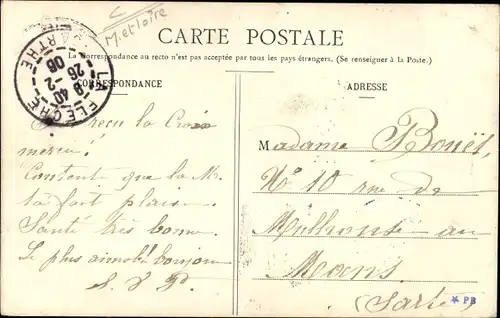 M. et Loire
CARTE POSTALE
La Correspondance au recto n'est pas acceptée par tous les pays étrangers. (Se renseigner à la Poste.)
CORRESPONDANCE
ADRESSE
LA FLÈCHE
SARTHE
8 40
26 - 2
06
reçu la Croix
merci!
Contente que la M.
ta fait plaisir.
Santé très bonne.
Le plus aimable bonjour
S. V P.
Madame Bouët,
No 10 rue de
Mulhouse au
Mans.
(Sarthe)
* PB